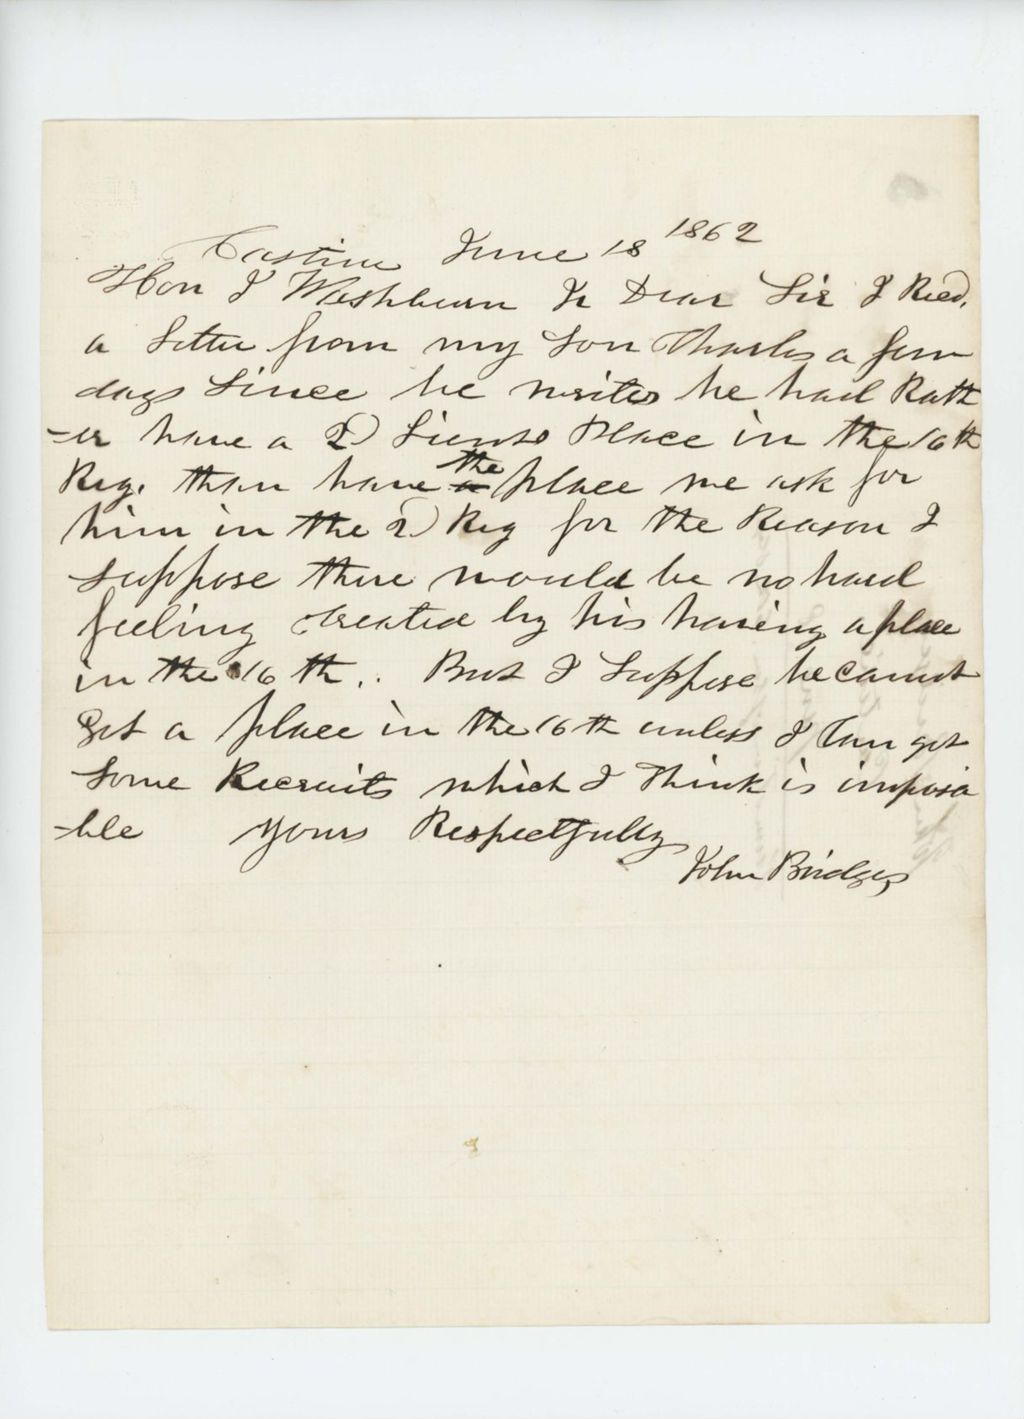 Castine June 18 1862
Hon I Washburn Jr Dear Sir I Recd.
a Letter from my Son Charles a few
days Since he writes he had Rath
-er have a 2d Lieuts Place in the 16th
Reg. than have a the place we ask for
him in the 2d Reg for the Reason I
Suppose there would be no hard
feeling Created by his having a place
in the 16th.. But I Suppose he cannot
get a place in the 16th unless I Can get
Some Recruits which I Think is imposa
-ble yours Respectfully
John Bridges